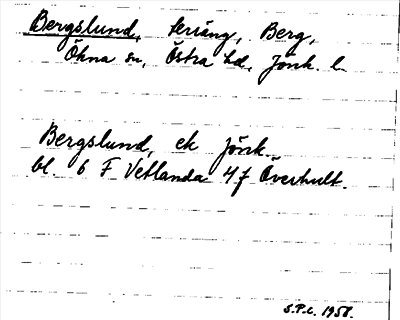 Bergslund, teräng, Berg,
Ökna sn, Östra hd, Jönk. l.
Bergslund, ek Jönk.
bl. 6 F Vetlanda 4 f Överhult.
S.P.c. 1958.